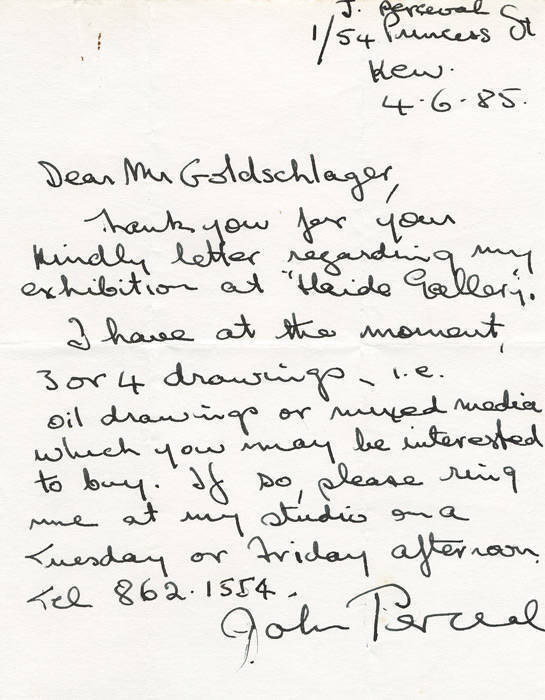 J. Perceval
1/54 Princess St
Kew.
4.6.85.
Dear Mr Goldschlager,
Thank you for your
kindly letter regarding my
exhibition at "Heide Gallery".
I have at the moment,
3 or 4 drawings, i.e.
oil drawings or mixed media
which you may be interested
to buy. If so, please ring
me at my studio on a
Tuesday or Friday afternoon.
Tel 862.1554.
John Perceval